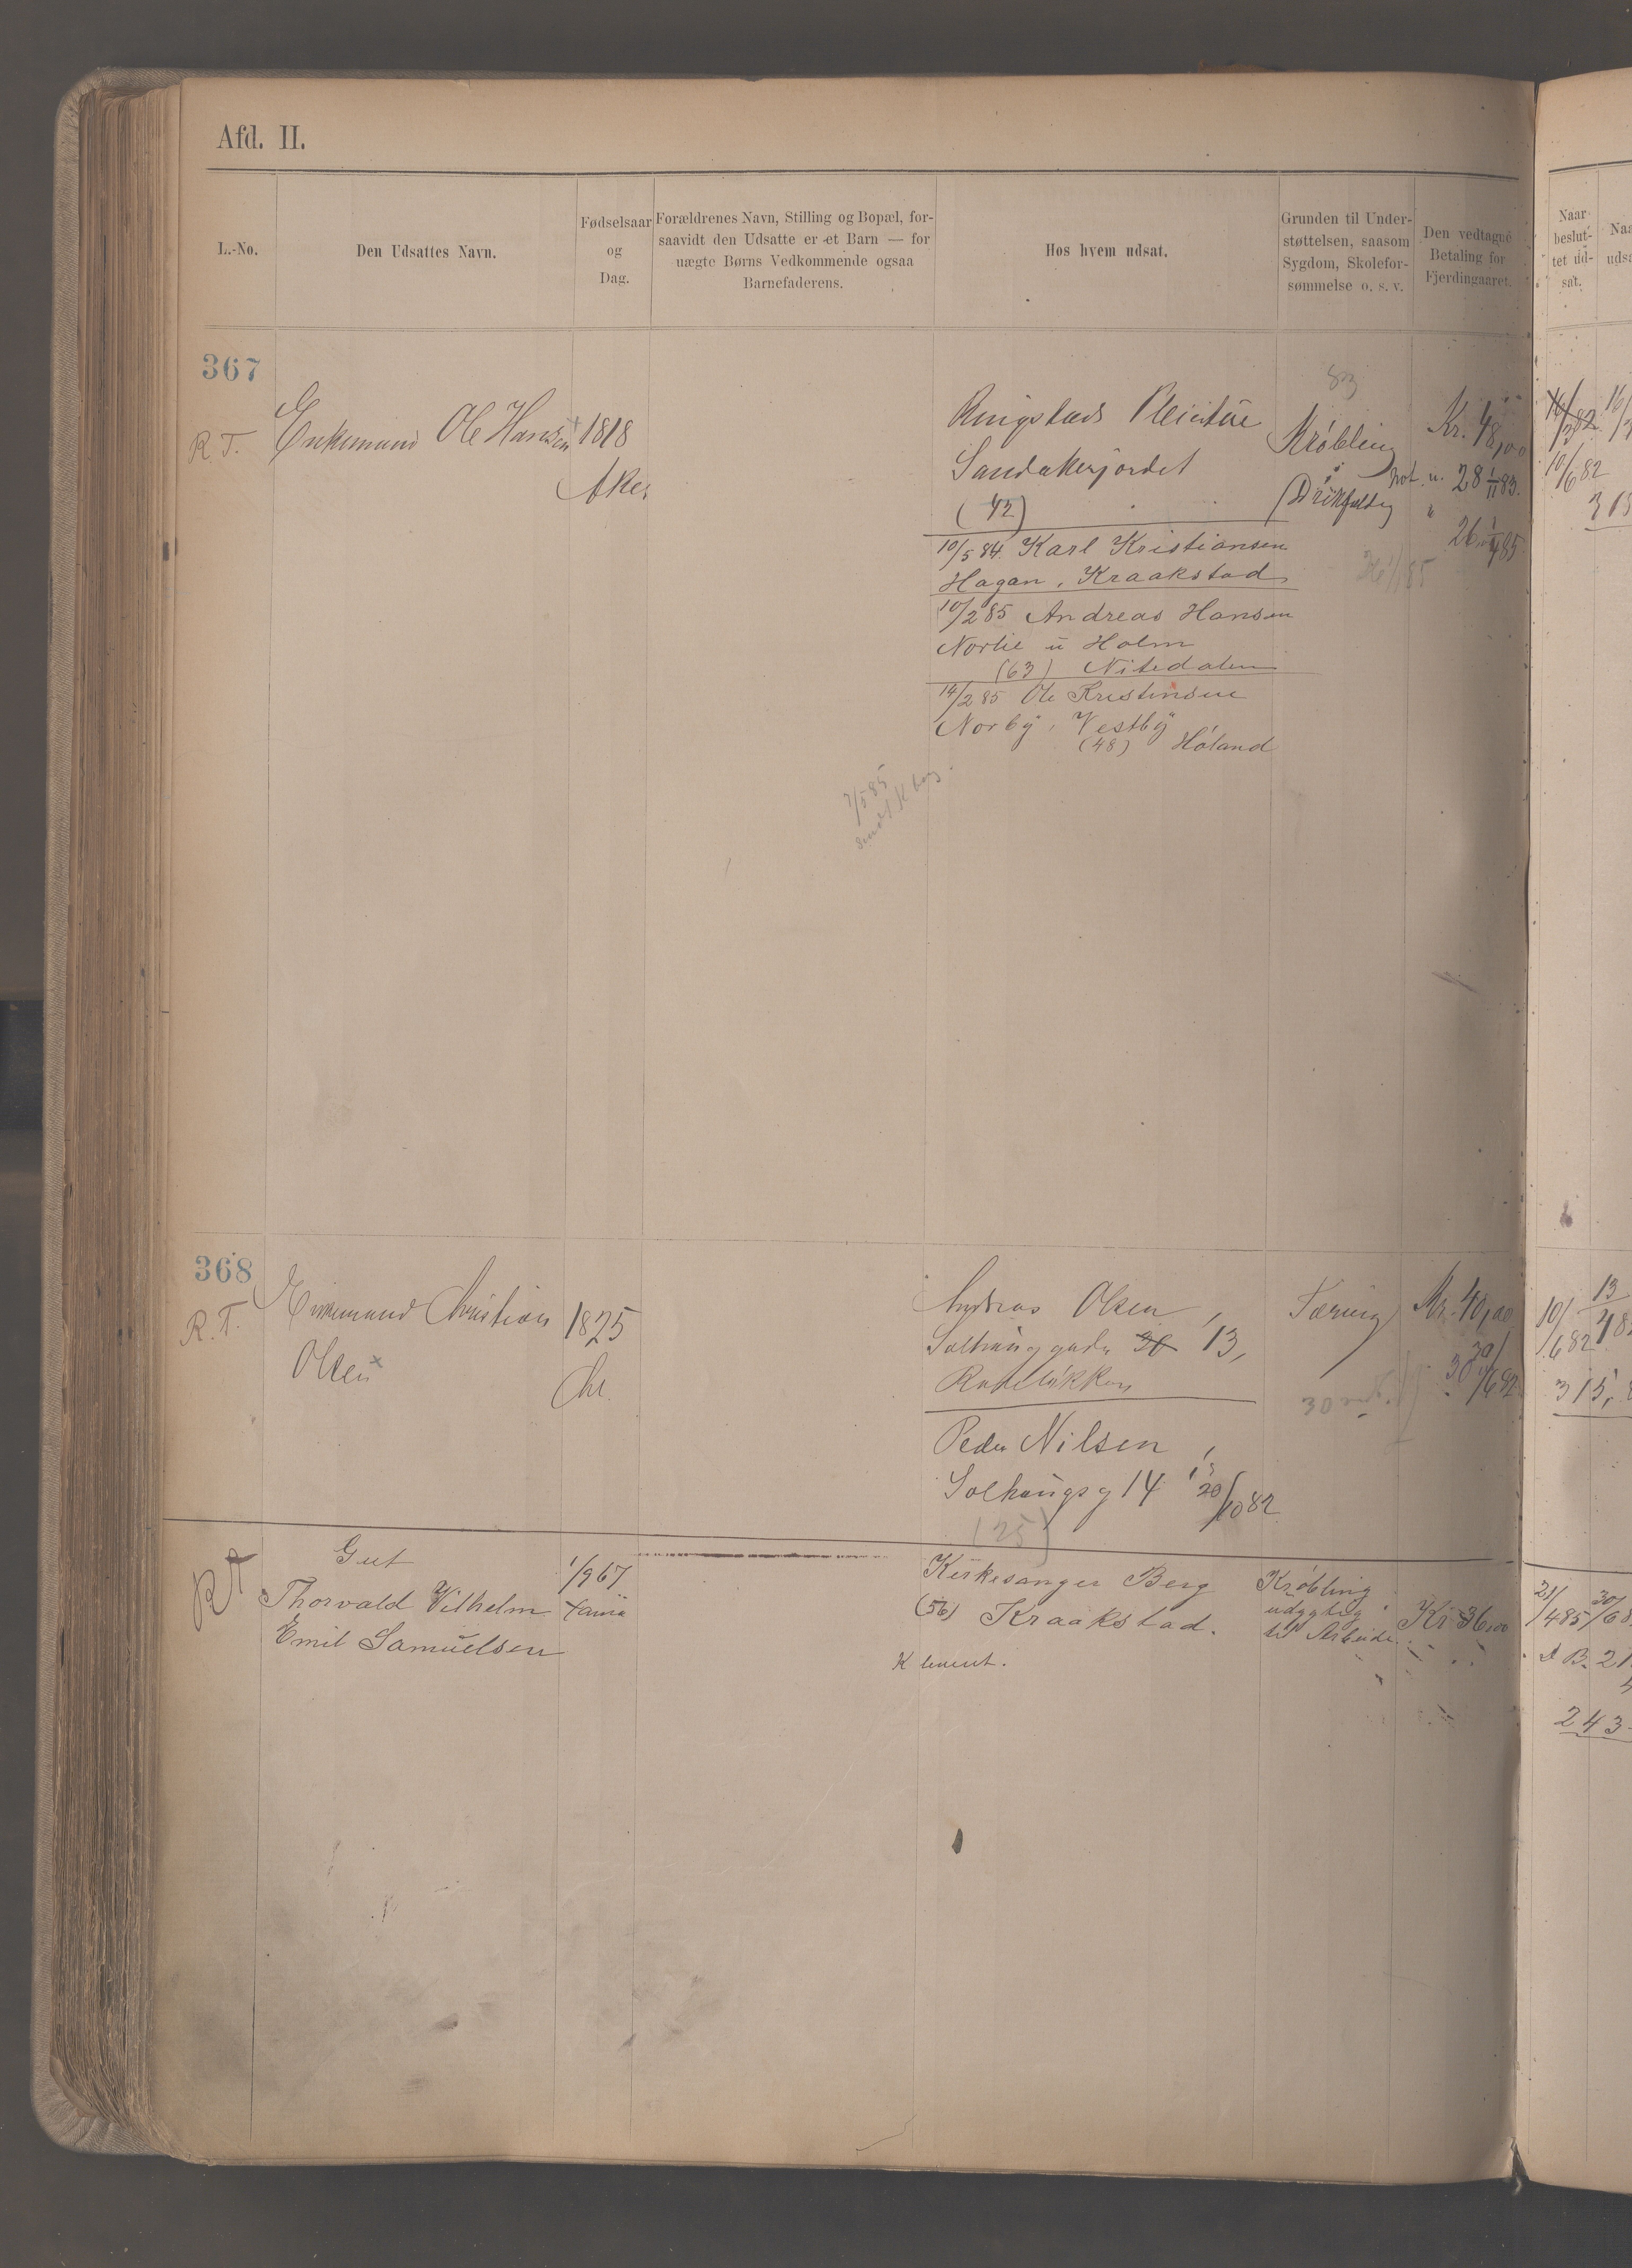 Afd. II.
L.-No.
Den Udsattes Navn.
Fødselsaar
og
Dag.
Forældrenes Navn, Stilling og Bopæl, for-
saavidt den Udsatte er et Barn — for
uægte Børns Vedkommende ogsaa
Barnefaderens.
Hos hvem udsat.
Grunden til Under-
støttelsen, saasom
Sygdom, Skolefor-
sømmelse o. s. v.
Den vedtagne
Betaling for
Fjerdingaaret.
Naar
beslut-
tet ud-
sat.
367
R. T.
Enkemand Ole Hansen
1818
Aker
Ringstads
Sandakerjordet
(42)
10/5 84 Karl Kristiansen
Hagan, Kraakstad
10/2 85 Andreas Hansen
Norlie u Holm
(63) Nitedalen
14/2 85 Ole Kristensen
Norby, Vestby
(48) Høland
7/5 85
83
Krøbling
Kr. 48,00
28 1/11 83.
26 1/4 85
10/6 82
368
R. T.
Enkemand Christian
Olsen
1825
Chr.
Andreas Olsen,
Solhauggaden 20 13,
Rodeløkken
Peder Nilsen,
Solhaugsg 14 20/10 82
(25)
Tæring
Kr. 40,00
30 30/6 82
10/6 82
315,
RT
Gut
Thorvald Vilhelm
Emil Samuelsen
1/9 67
Kirkesanger Berg
(56) Kraakstad.
K
Krøbling
udygtig
til Arbeide
Kr 36,00
21/4 85
243